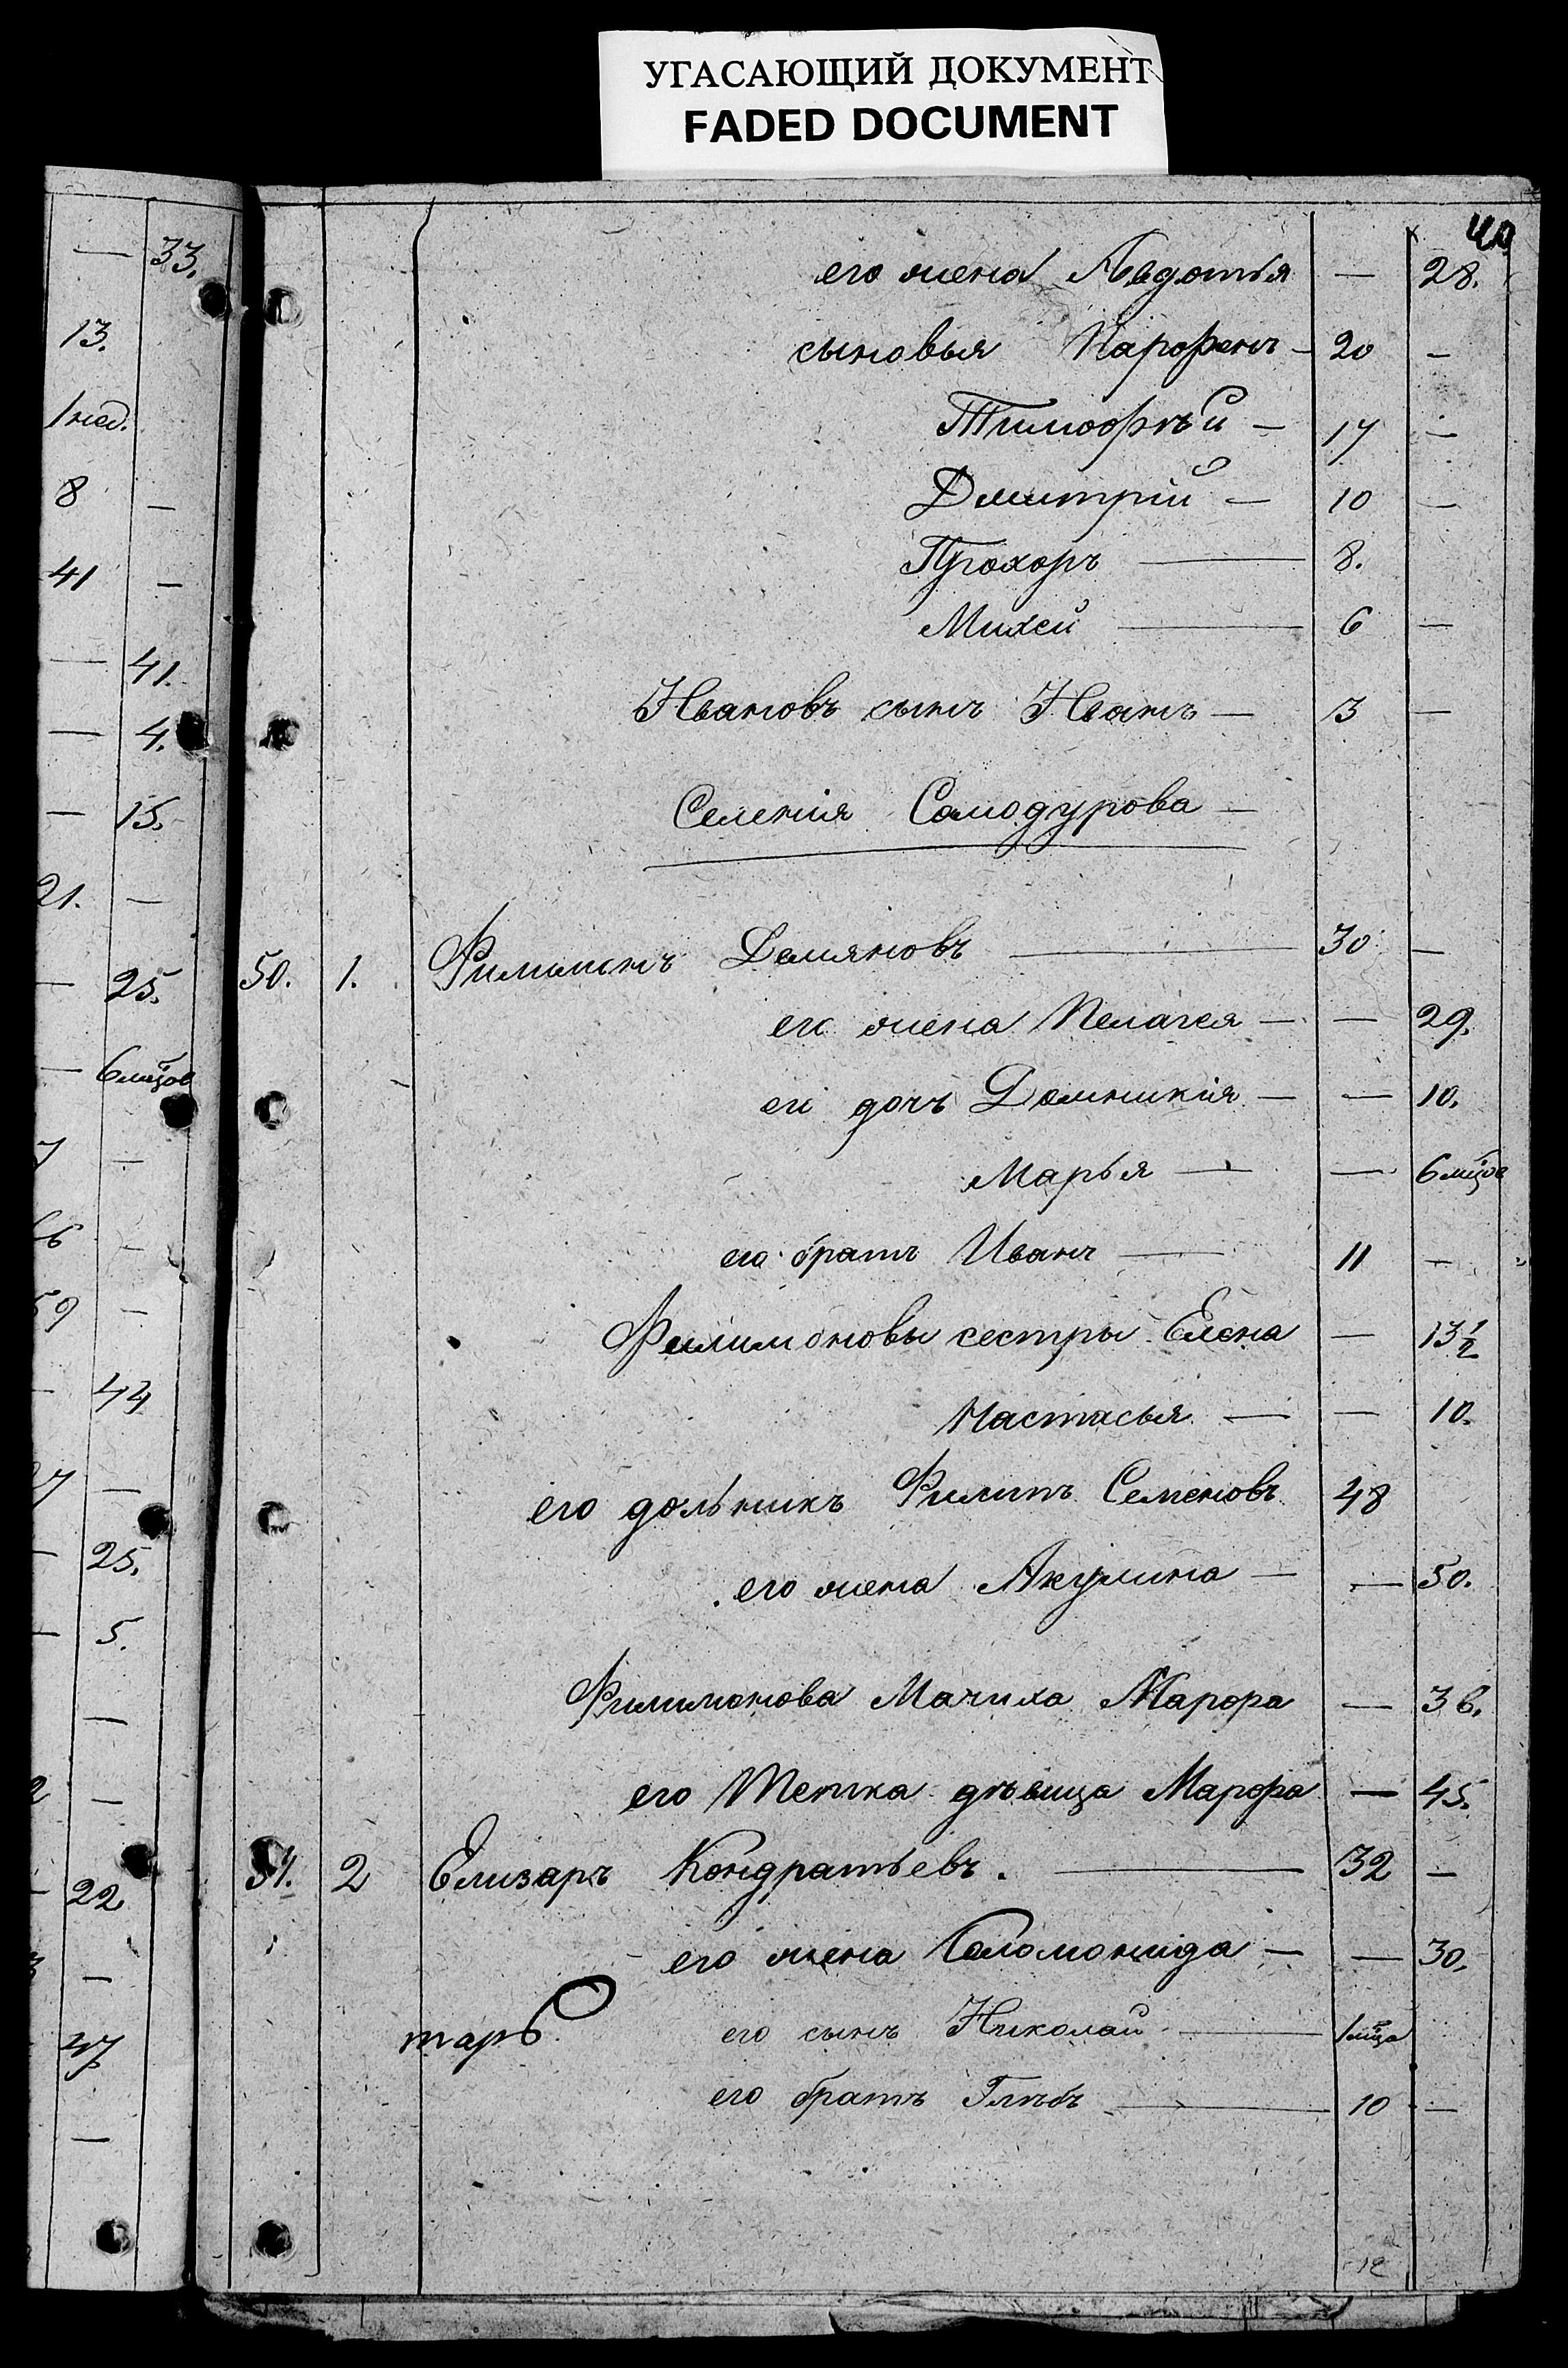 УГАСАЮЩИЙ ДОКУМЕНТ
FADED DOCUMENT
40
— 33.
13.
1 нед.
8 —
41 —
— 41.
— 4.
— 15.
21. —
— 25.
— 6 мѣцов
— 44
— 25.
— 5.
22
47
его жена Авдотья — 28.
сыновья Парфенъ — 20 —
Тимофѣй — 17 —
Дмитрій — 10 —
Прохоръ — 8.
Михей — 6 —
Ивановъ сынъ Иванъ — 3 —
Селенія Самодурова —
50. 1. Филимонъ Демяновъ — 30 —
его жена Пелагея — — 29.
его дочъ Домникія — — 10.
Марья — — 6 мѣцов
его братъ Иванъ — 11 —
Филимоновы сестры Елена — 13 1/2
Настасья — — 10.
его дольникъ Филипъ Семеновъ 48
его жена Акулина — — 50.
Филимонова Мачиха Марфа — 36.
его Тетка дѣвица Марфа — 45.
51. 2 Елизаръ Кондратьевъ. — 32 —
его жена Соломонида — — 30.
его сынъ Николай — 1 мѣца
тарь
его братъ Глѣбъ — 10 —